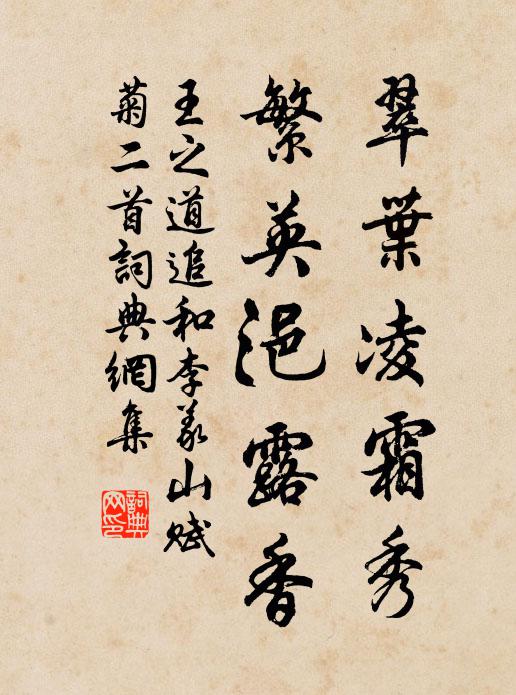 翠葉凌霜秀
繁英浥露香
王之道追和李義山賦
菊二首詞典網集
詞典
网印